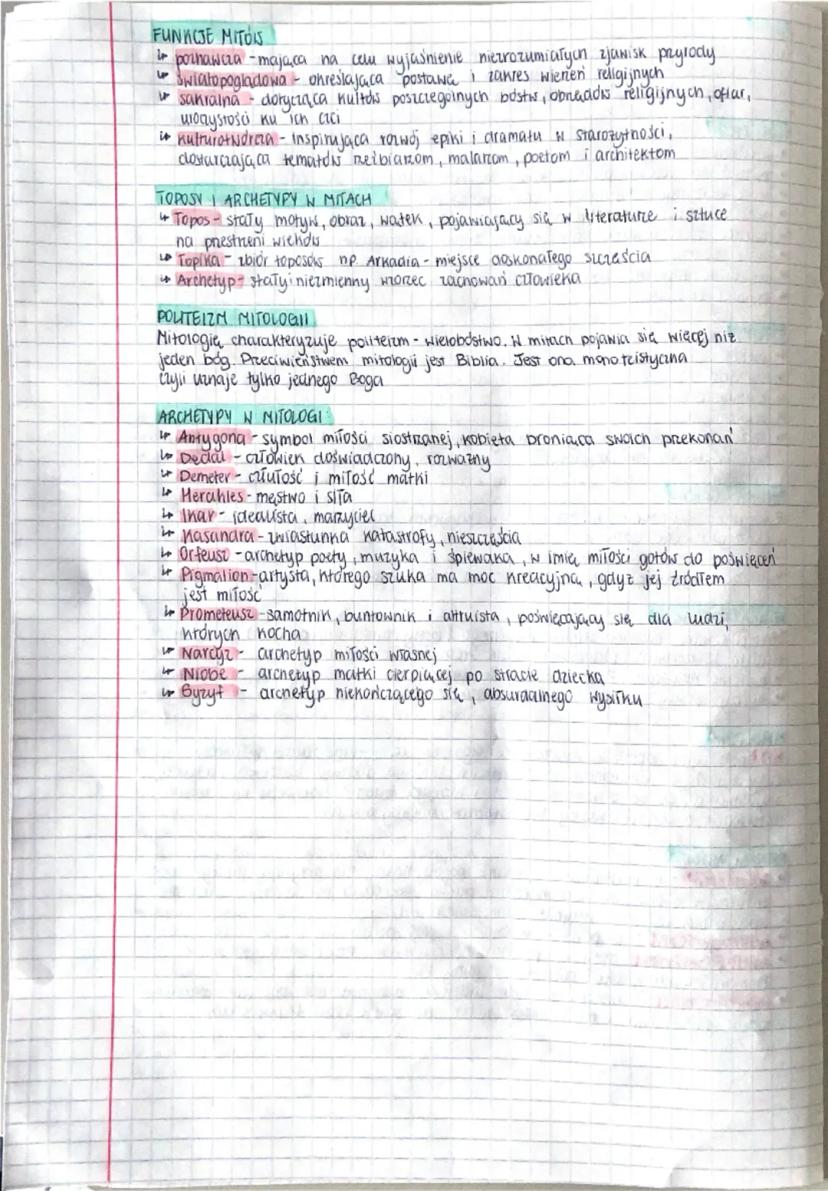 FUNKCJE MITÓW
↳ poznawcza - mająca na celu wyjaśnienie niezrozumiałych zjawisk przyrody
↳ światopoglądowa - określająca postawę i zakres wierzeń religijnych
↳ sakralna - dotycząca kultów poszczególnych bóstw, obrzędów religijnych, ofiar,
uroczystości ku ich czci
↳ kulturotwórcza - inspirująca rozwój epiki i dramatu w starożytności,
dostarczająca tematów rzeźbiarzom, malarzom, poetom i architektom
TOPOSY I ARCHETYPY W MITACH
↳ Topos - stały motyw, obraz, wątek, pojawiający się w literaturze i sztuce
na przestrzeni wieków
↳ Topika - zbiór toposów np. Arkadia - miejsce doskonałego szczęścia
↳ Archetyp - stały i niezmienny wzorzec zachowań człowieka
POLITEIZM MITOLOGII
Mitologię charakteryzuje politeizm - wielobóstwo. W mitach pojawia się więcej niż
jeden bóg. Przeciwieństwem mitologii jest Biblia. Jest ona monoteistyczna
czyli uznaje tylko jednego Boga
ARCHETYPY W MITOLOGI:
↳ Antygona - symbol miłości siostrzanej, kobieta broniąca swoich przekonań
↳ Dedal - człowiek doświadczony, rozważny
↳ Demeter - czułość i miłość matki
↳ Herakles - męstwo i siła
↳ Ikar - idealista, marzyciel
↳ Kasandra - zwiastunka katastrofy, nieszczęścia
↳ Orfeusz - archetyp poety, muzyka i śpiewaka, w imię miłości gotów do poświęceń
↳ Pigmalion - artysta, którego szuka ma moc kreacyjną, gdyż jej źródłem
jest miłość
↳ Prometeusz - samotnik, buntownik i altruista, poświęcający się dla ludzi,
których kocha
↳ Narcyz - archetyp miłości własnej
↳ Niobe - archetyp matki cierpiącej po stracie dziecka
↳ Syzyf - archetyp niekończącego się, absurdalnego wysiłku